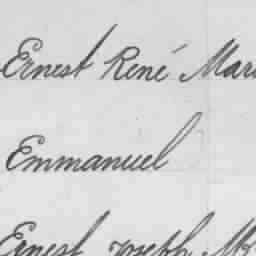 Ernest René Mari
Emmanuel
Ernest Joseph M